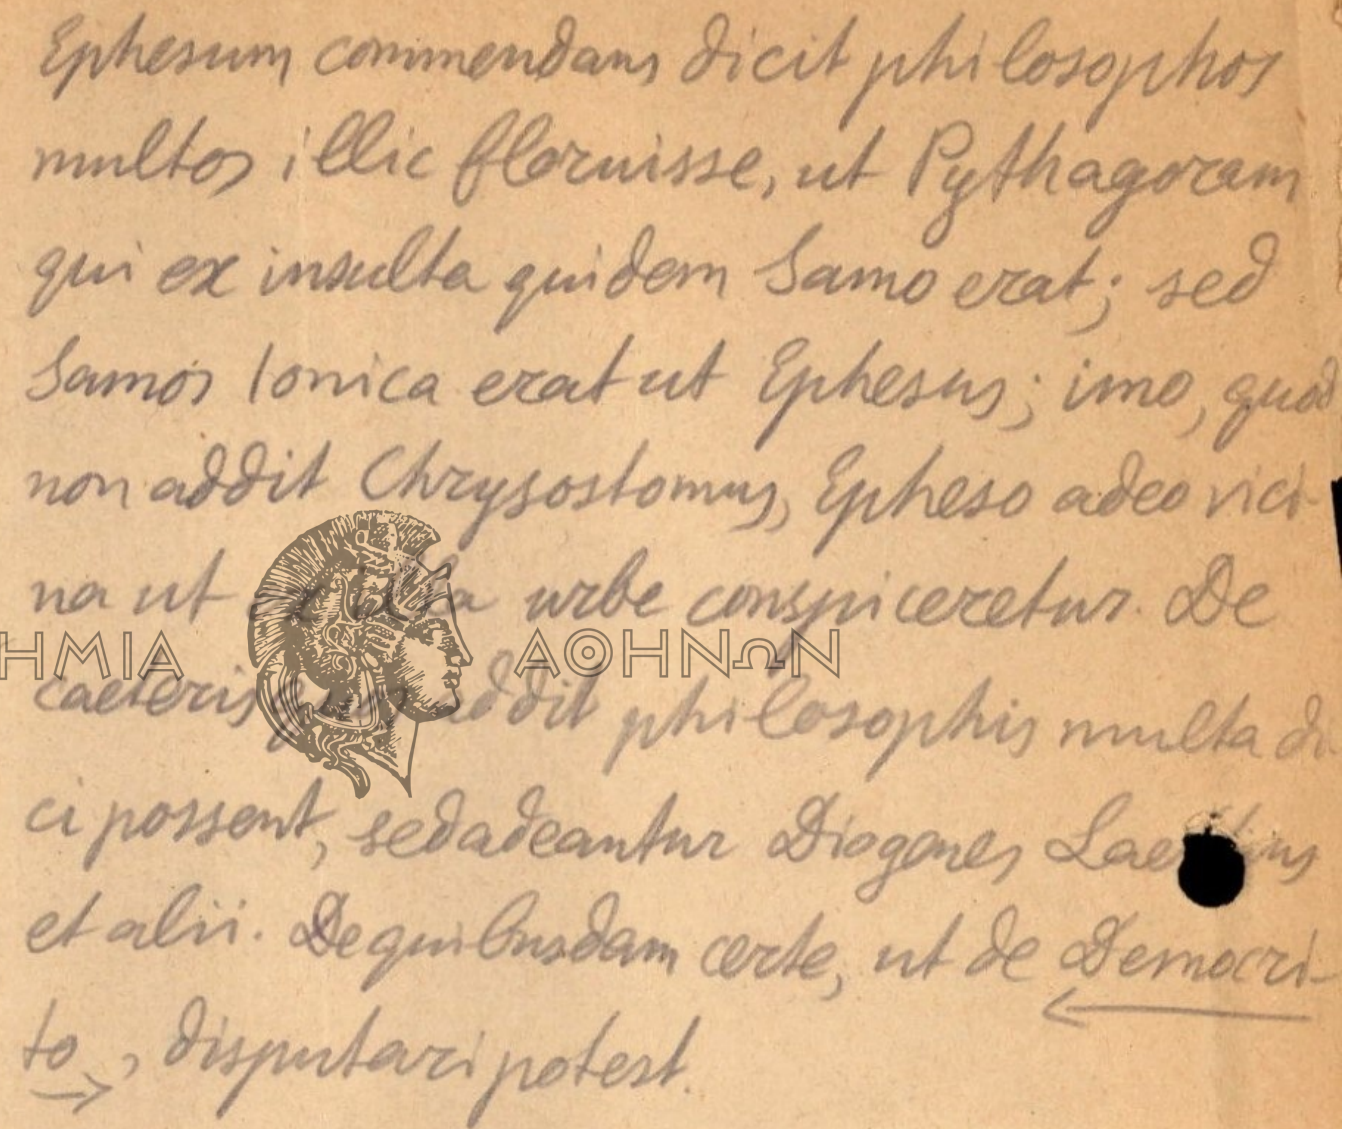 Ephesum commendans dicit philosophos
multos illic floruisse, ut Pythagoram
qui ex insulta quidem Samo erat; sed
Samos Ionica erat ut Ephesus; imo, quod
non addit Chrysostomus, Epheso adeo vici-
na ut ex illa urbe conspiceretur. De
ΗΜΙΑ ΑΘΗΝΩΝ
caeteris quos addit philosophis multa di-
ci possent, sed adeantur Diogenes Laertius
et alii. De quibusdam certe, ut de Democri-
to, disputari potest.